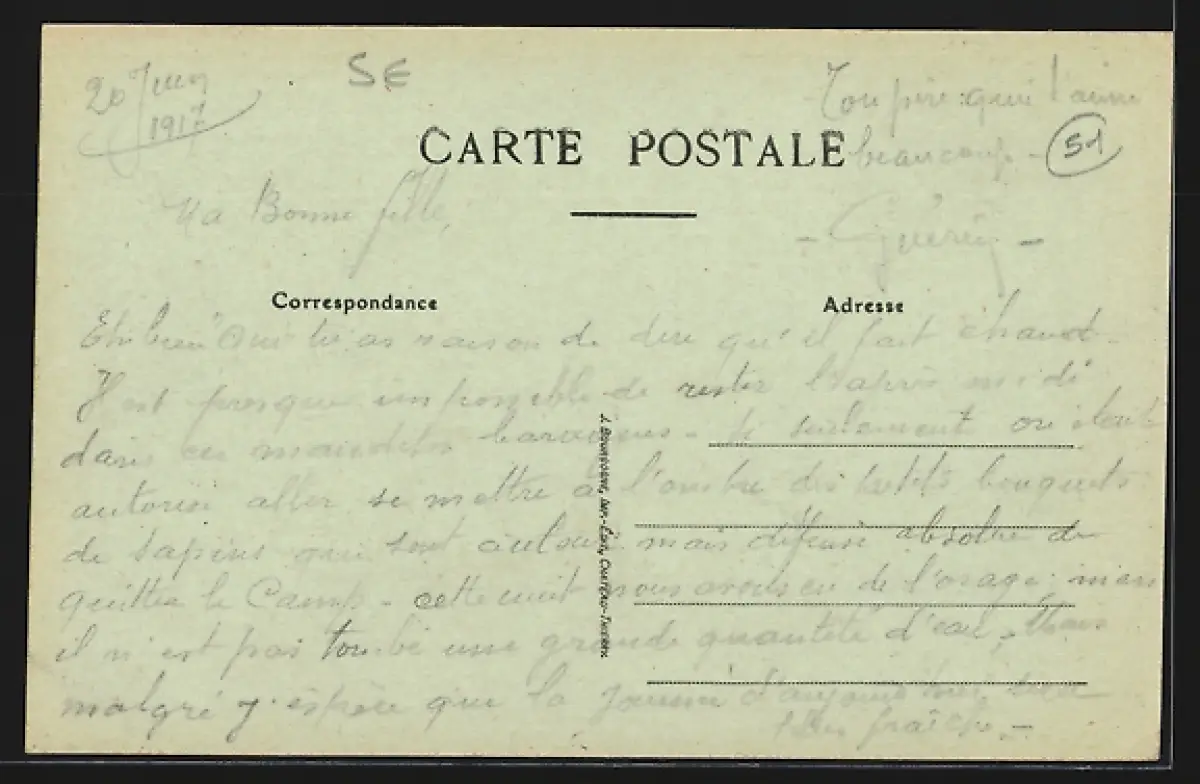 20 Juin
1917
SE
Ton père qui t'aime
beaucoup -
51
CARTE POSTALE
Ma Bonne fille,
- Guérin -
Correspondance
Adresse
Eh bien Oui tu as raison de dire qu'il fait chaud.
Il est presque impossible de rester l'après midi
dans ces maudites baraques - si seulement on était
autorisé aller se mettre à l'ombre des petits bouquets
de sapins qui sont autour mais défense absolue de
quitter le Camp - cette nuit nous avons eu de l'orage, mais
il n'est pas tombé une grande quantité d'eau, Mais
malgré j'espère que la journée d'aujourd'hui sera
plus fraîche. -
J. BOURGOGNE, IMP.-ÉDIT., CHATEAU-THIERRY